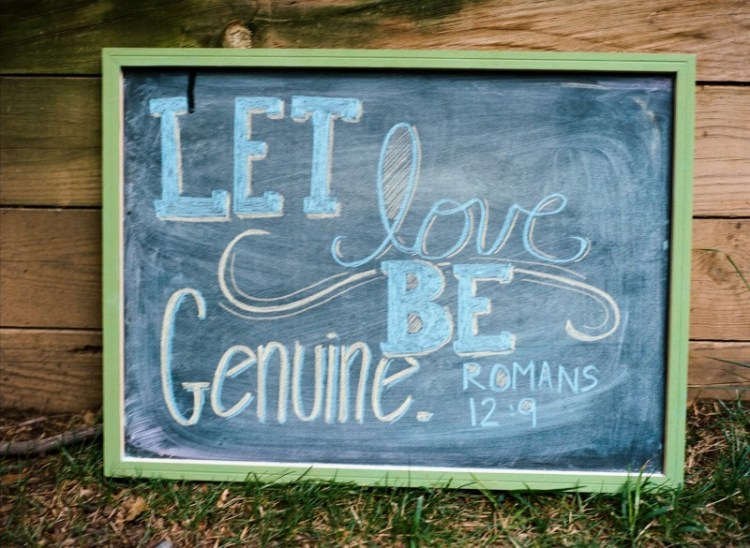 LET
love
BE
Genuine.
ROMANS
12:9